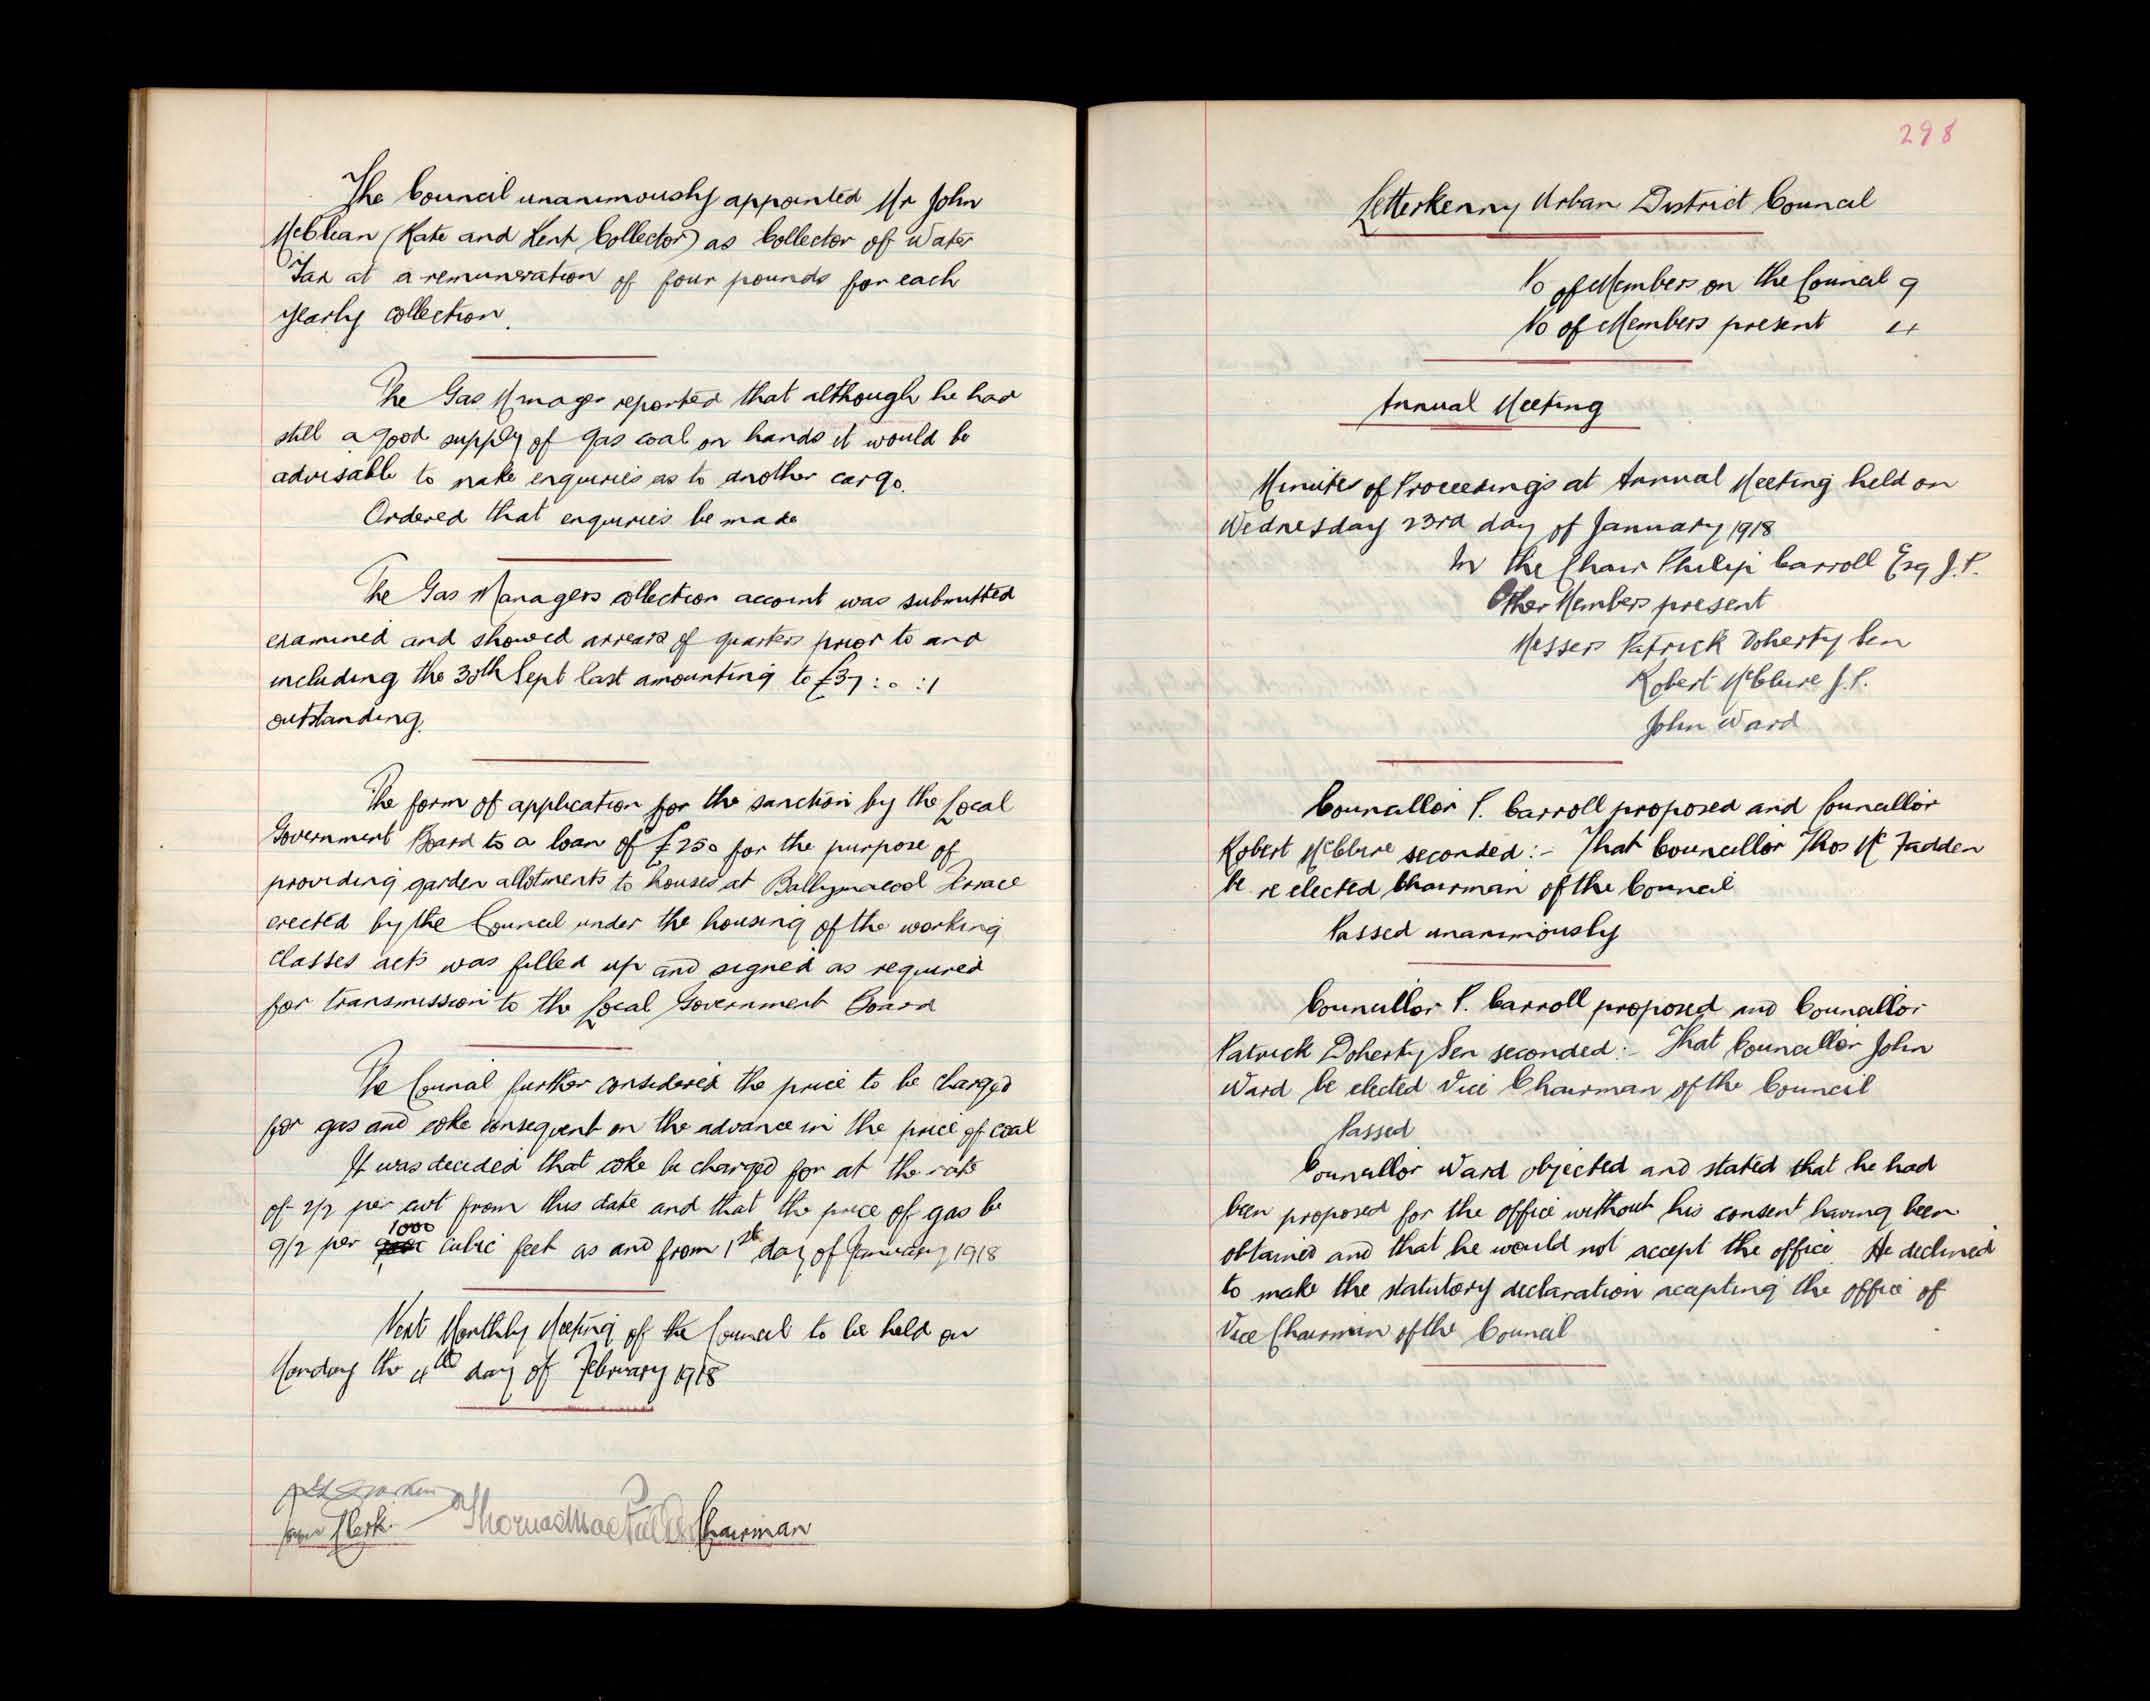 The Council unanimously appointed Mr John
McClean (Rate and Rent Collector) as Collector of Water
Tax at a remuneration of four pounds for each
yearly collection.
The Gas Manager reported that although he had
still a good supply of gas coal on hands it would be
advisable to make enquiries as to another cargo.
Ordered that enquiries be made
The Gas Managers collection account was submitted
examined and showed arrears of quarters prior to and
including the 30th Sept last amounting to £37 : 0 : 1
outstanding.
The form of application for the sanction by the Local
Government Board to a loan of £250 for the purpose of
providing garden allotments to houses at Ballymacool Terrace
erected by the Council under the housing of the working
classes acts was filled up and signed as required
for transmission to the Local Government Board
The Council further considered the price to be charged
for gas and coke consequent on the advance in the price of coal
It was decided that coke be charged for at the rate
of 2/2 per cwt from this date and that the price of gas be
9/2 per 1000 cubic feet as and from 1st day of January 1918
Next Monthly Meeting of the Council to be held on
Monday the 4th day of February 1918
Town Clerk Thomas Mac Fadden Chairman
298
Letterkenny Urban District Council
No of Members on the Council 9
No of Members present 4
Annual Meeting
Minutes of Proceedings at Annual Meeting held on
Wednesday 23rd day of January 1918
In the Chair Philip Carroll Esq J.P.
Other Members present
Messers Patrick Doherty Sen
Robert McClure J.P.
John Ward
Councillor P. Carroll proposed and Councillor
Robert McClure seconded :- That Councillor Thos Mc Fadden
be re elected Chairman of the Council
Passed unanimously
Councillor P. Carroll proposed and Councillor
Patrick Doherty Sen seconded :- That Councillor John
Ward be elected Vice Chairman of the Council
Passed
Councillor Ward objected and stated that he had
been proposed for the office without his consent having been
obtained and that he would not accept the office. He declined
to make the statutory declaration accepting the office of
Vice Chairman of the Council